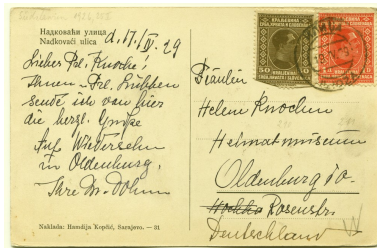 Надковачи улица
Nadkovači ulica
d. 17./IV. 29
Lieber Frl. Knoche!
Ihnen u. Frl. Lübben
sende ich von hier
die herzl. Grüße
Auf Wiedersehn
in Oldenburg.
Ihre
Naklada: Hamdija Kopčić, Sarajevo. — 31
КРАЉЕВИНА
50
КРАЉЕВИНА
Fräulein
Helene Knochen
Heimatmuseum
Oldenburg i/o.
Rosenstr.
Deutschland